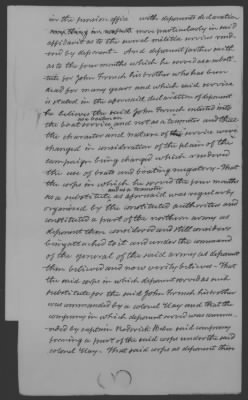 in the pension office with deponents declaration
more particularly in said
affidavit as to the naval militia service rend-
ered by deponent - And deponent further saith
as to the four months which he served as a substi-
tute for John French his brother who has been
dead for many years and which said service
is stated in the aforesaid declaration of deponent
he believes the said John French enlisted into
the boat service as boatman and not as a teamster and that
the character and nature of the service were
changed in consideration of the plan of the
campaign being changed which rendered
the use of boats and boating nugatory - That
the corps in which he served the four months
as a substitute as aforesaid was regularly
organised by the constituted authorities and
constituted a part of the northern army as
deponent then considered and still considers
being attached to it and under the command
of the general of the said army as deponent
then believed and now verily believes - That
the said corps in which deponent served as such
substitute for the said John French his brother
was commanded by a colonel Hay and that the
company in which deponent served was comman-
ded by captain Roderick said company
forming a part of the said corps under the said
colonel Hay. That said corps as deponent then